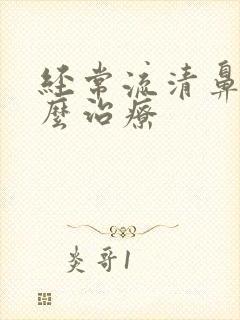 经常流清鼻
麼治療
炎哥1